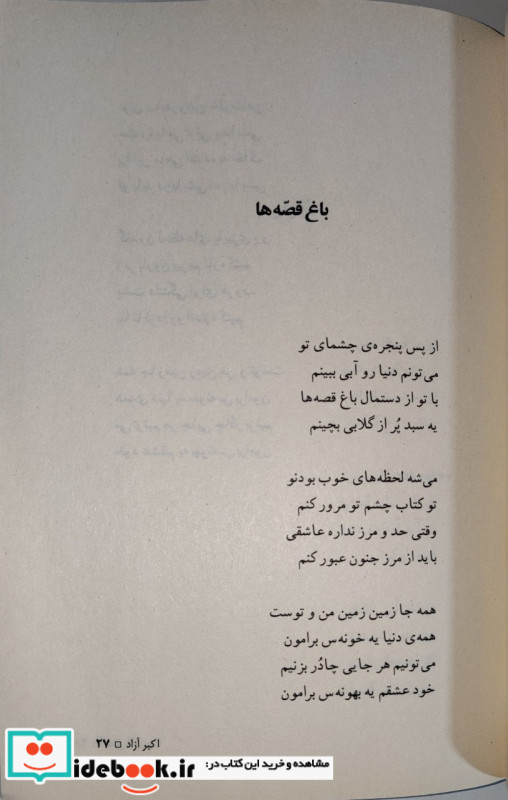 باغ قصّه‌ها
از پس پنجره‌ی چشمای تو
می‌تونم دنیا رو آبی ببینم
با تو از دستمال باغ قصه‌ها
یه سبد پُر از گلابی بچینم
می‌شه لحظه‌های خوب بودنو
تو کتاب چشم تو مرور کنم
وقتی حد و مرز نداره عاشقی
باید از مرز جنون عبور کنم
همه جا زمین زمین من و توست
همه‌ی دنیا یه خونه‌س برامون
می‌تونیم هر جایی چادُر بزنیم
خود عشقم یه بهونه‌س برامون
اکبر آزاد □ ۲۷
مشاهده و خرید این کتاب در:
idebook.ir